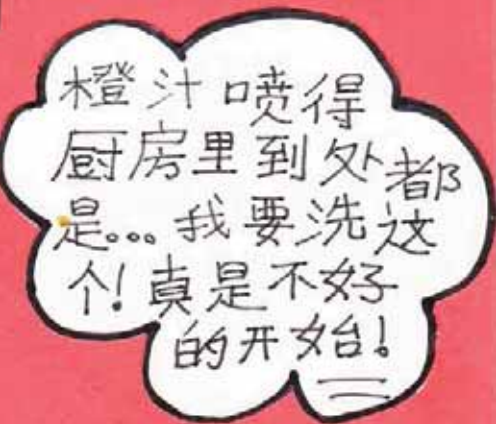 橙汁喷得
厨房里到处都
是...我要洗这
个!真是不好
的开始!